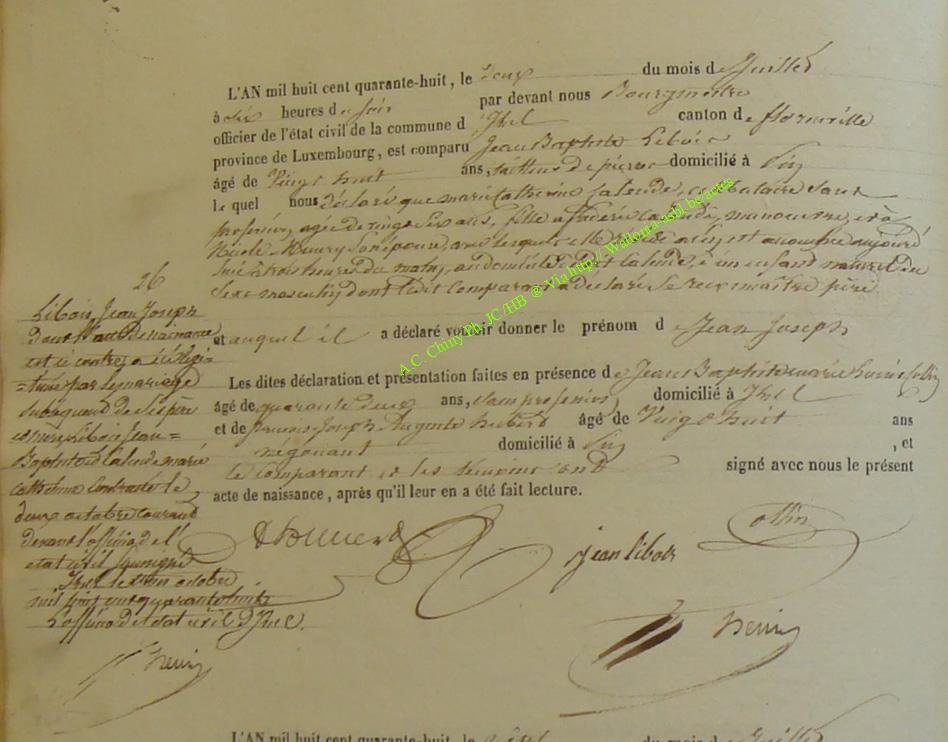 L'AN mil huit cent quarante-huit, le deux du mois de Juillet
à six heures du soir par devant nous Bourgmestre
officier de l'état civil de la commune d'Izel canton de florenville
province de Luxembourg, est comparu Jean Baptiste Libois
âgé de Vingt huit ans, tailleur de pierre domicilié à Pin
le quel nous déclaré que marie Catherine Calande, célibataire sans
profession, agée de vingt six ans, fille a Calande, manouvre, et à
Maury son épouse, avec lesquels elle réside à Pin, est accouchée aujourd
hui à trois heures du matin, au domicile dudit Calande, d'un enfant naturel du
sexe masculin dont ledit comparant a déclaré se reconnaitre père
et auquel il a déclaré vouloir donner le prénom de Jean Joseph
Les dites déclaration et présentation faites en présence de Jean Baptiste marie Collin
âgé de quarante deux ans, sans profession domicilié à Izel
et de françois Joseph Auguste hubert âgé de Vingt huit ans
négociant domicilié à Pin , et
le comparant et les témoins ont signé avec nous le présent
acte de naissance, après qu'il leur en a été fait lecture.
Collin
jean libois
henin
26
Libois, Jean Joseph
dont l'acte de naissance
est ci contre, a été légi-
=timé par le mariage
subséquent de ses père
et mère Libois Jean=
Baptiste et Calande marie
catherine contracté le
deux octobre courant
devant l'officier de l'
etat civil soussigné
Izel le octobre
mil huit cent quarante huit
L'officier de l'etat civil d'Izel.
henin
A.C. Chiny Ph. JC/HB @ Via http// Wallonia-asbl.be/actes
L'AN mil huit cent quarante-huit, le sept du mois de Juillet